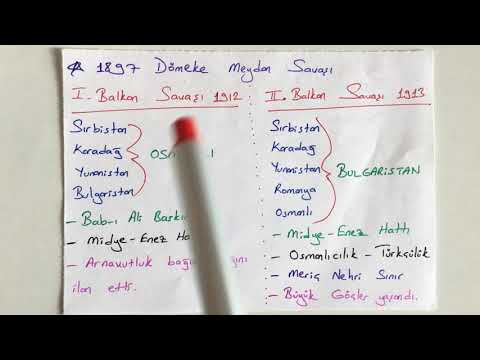 ☆ 1897 Dömeke Meydan Savaşı
I. Balkan Savaşı 1912
Sırbistan
Karadağ
Yunanistan
Bulgaristan
- Bab-ı Ali
- Midye-Enez
- Arnavutluk
ilan etti.
II. Balkan Savaşı 1913
Sırbistan
Karadağ
Yunanistan
Romanya
Osmanlı
BULGARISTAN
- Midye-Enez Hattı
- Osmanlıcılık - Türkçülük
- Meriç Nehri Sınır
- Büyük Göçler yaşandı.